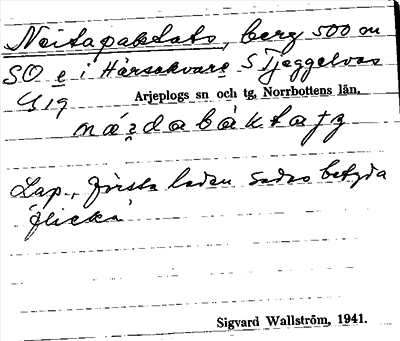 Neitapaktats, berg 500 m
SO e i Hårsakvare S Tjeggelvas
Arjeplogs sn och tg, Norrbottens län.
Lap., första leden sades betyda
'flicka'
Sigvard Wallström, 1941.